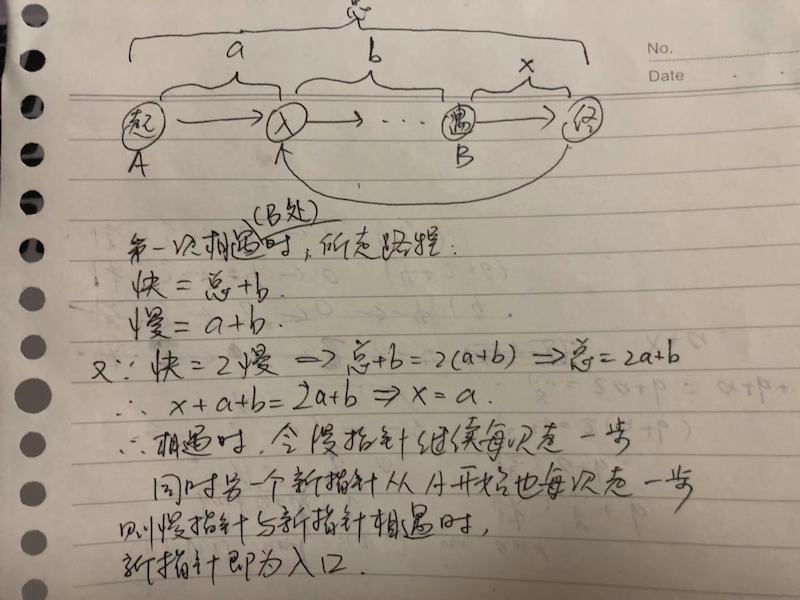 总
a b x
No.
Date
起 入 ... 遇 终
A B
(B处)
第一次相遇时,所走路程:
快=总+b.
慢=a+b.
又∵快=2慢 => 总+b=2(a+b) => 总=2a+b
∴ x+a+b=2a+b => x=a.
∴相遇时,令慢指针继续每次走一步
同时另一个新指针从A开始也每次走一步
则慢指针与新指针相遇时,
新指针即为入口.